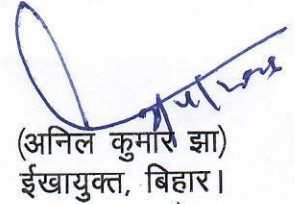 (अनिल कुमार झा)
ईखायुक्त, बिहार।